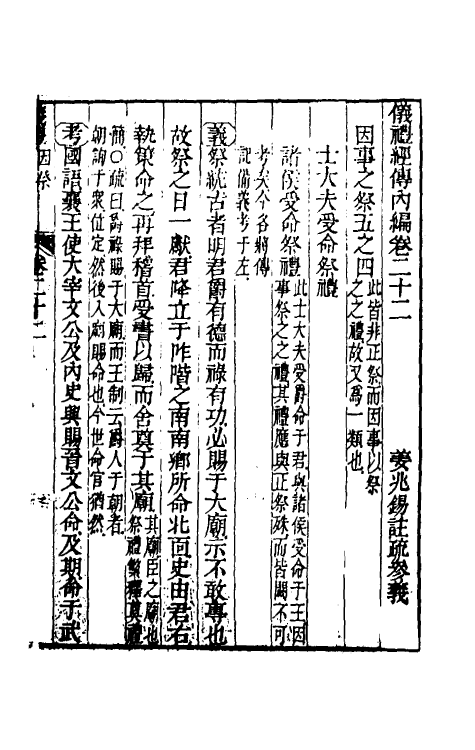 儀禮經傳內編卷二十二
姜兆錫註疏參義
因事之祭五之四
此皆非正祭而因事以祭
之之禮故又爲一類也
士大夫受命祭禮
諸侯受命祭禮
此士大夫受爵命于君與諸侯受命于王因
事祭之之禮其禮應與正祭殊而皆闕不可
考矣今各將傳
記備義考于左
義祭統古者明君爵有德而祿有功必賜于大廟示不敢專也
故祭之日一獻君降立于阼階之南南鄉所命北面史由君右
執策命之再拜稽首受書以歸而舍奠于其廟
其廟臣之廟也
祭禮釋奠禮
簡〇疏曰爵祿賜于大廟而王制云爵人于朝者
朝詢于衆位定然後入廟賜命也今世命官猶然
考國語襄王使大宰文公及內史興賜晉文公命及期命于武
因祭
卷二十二